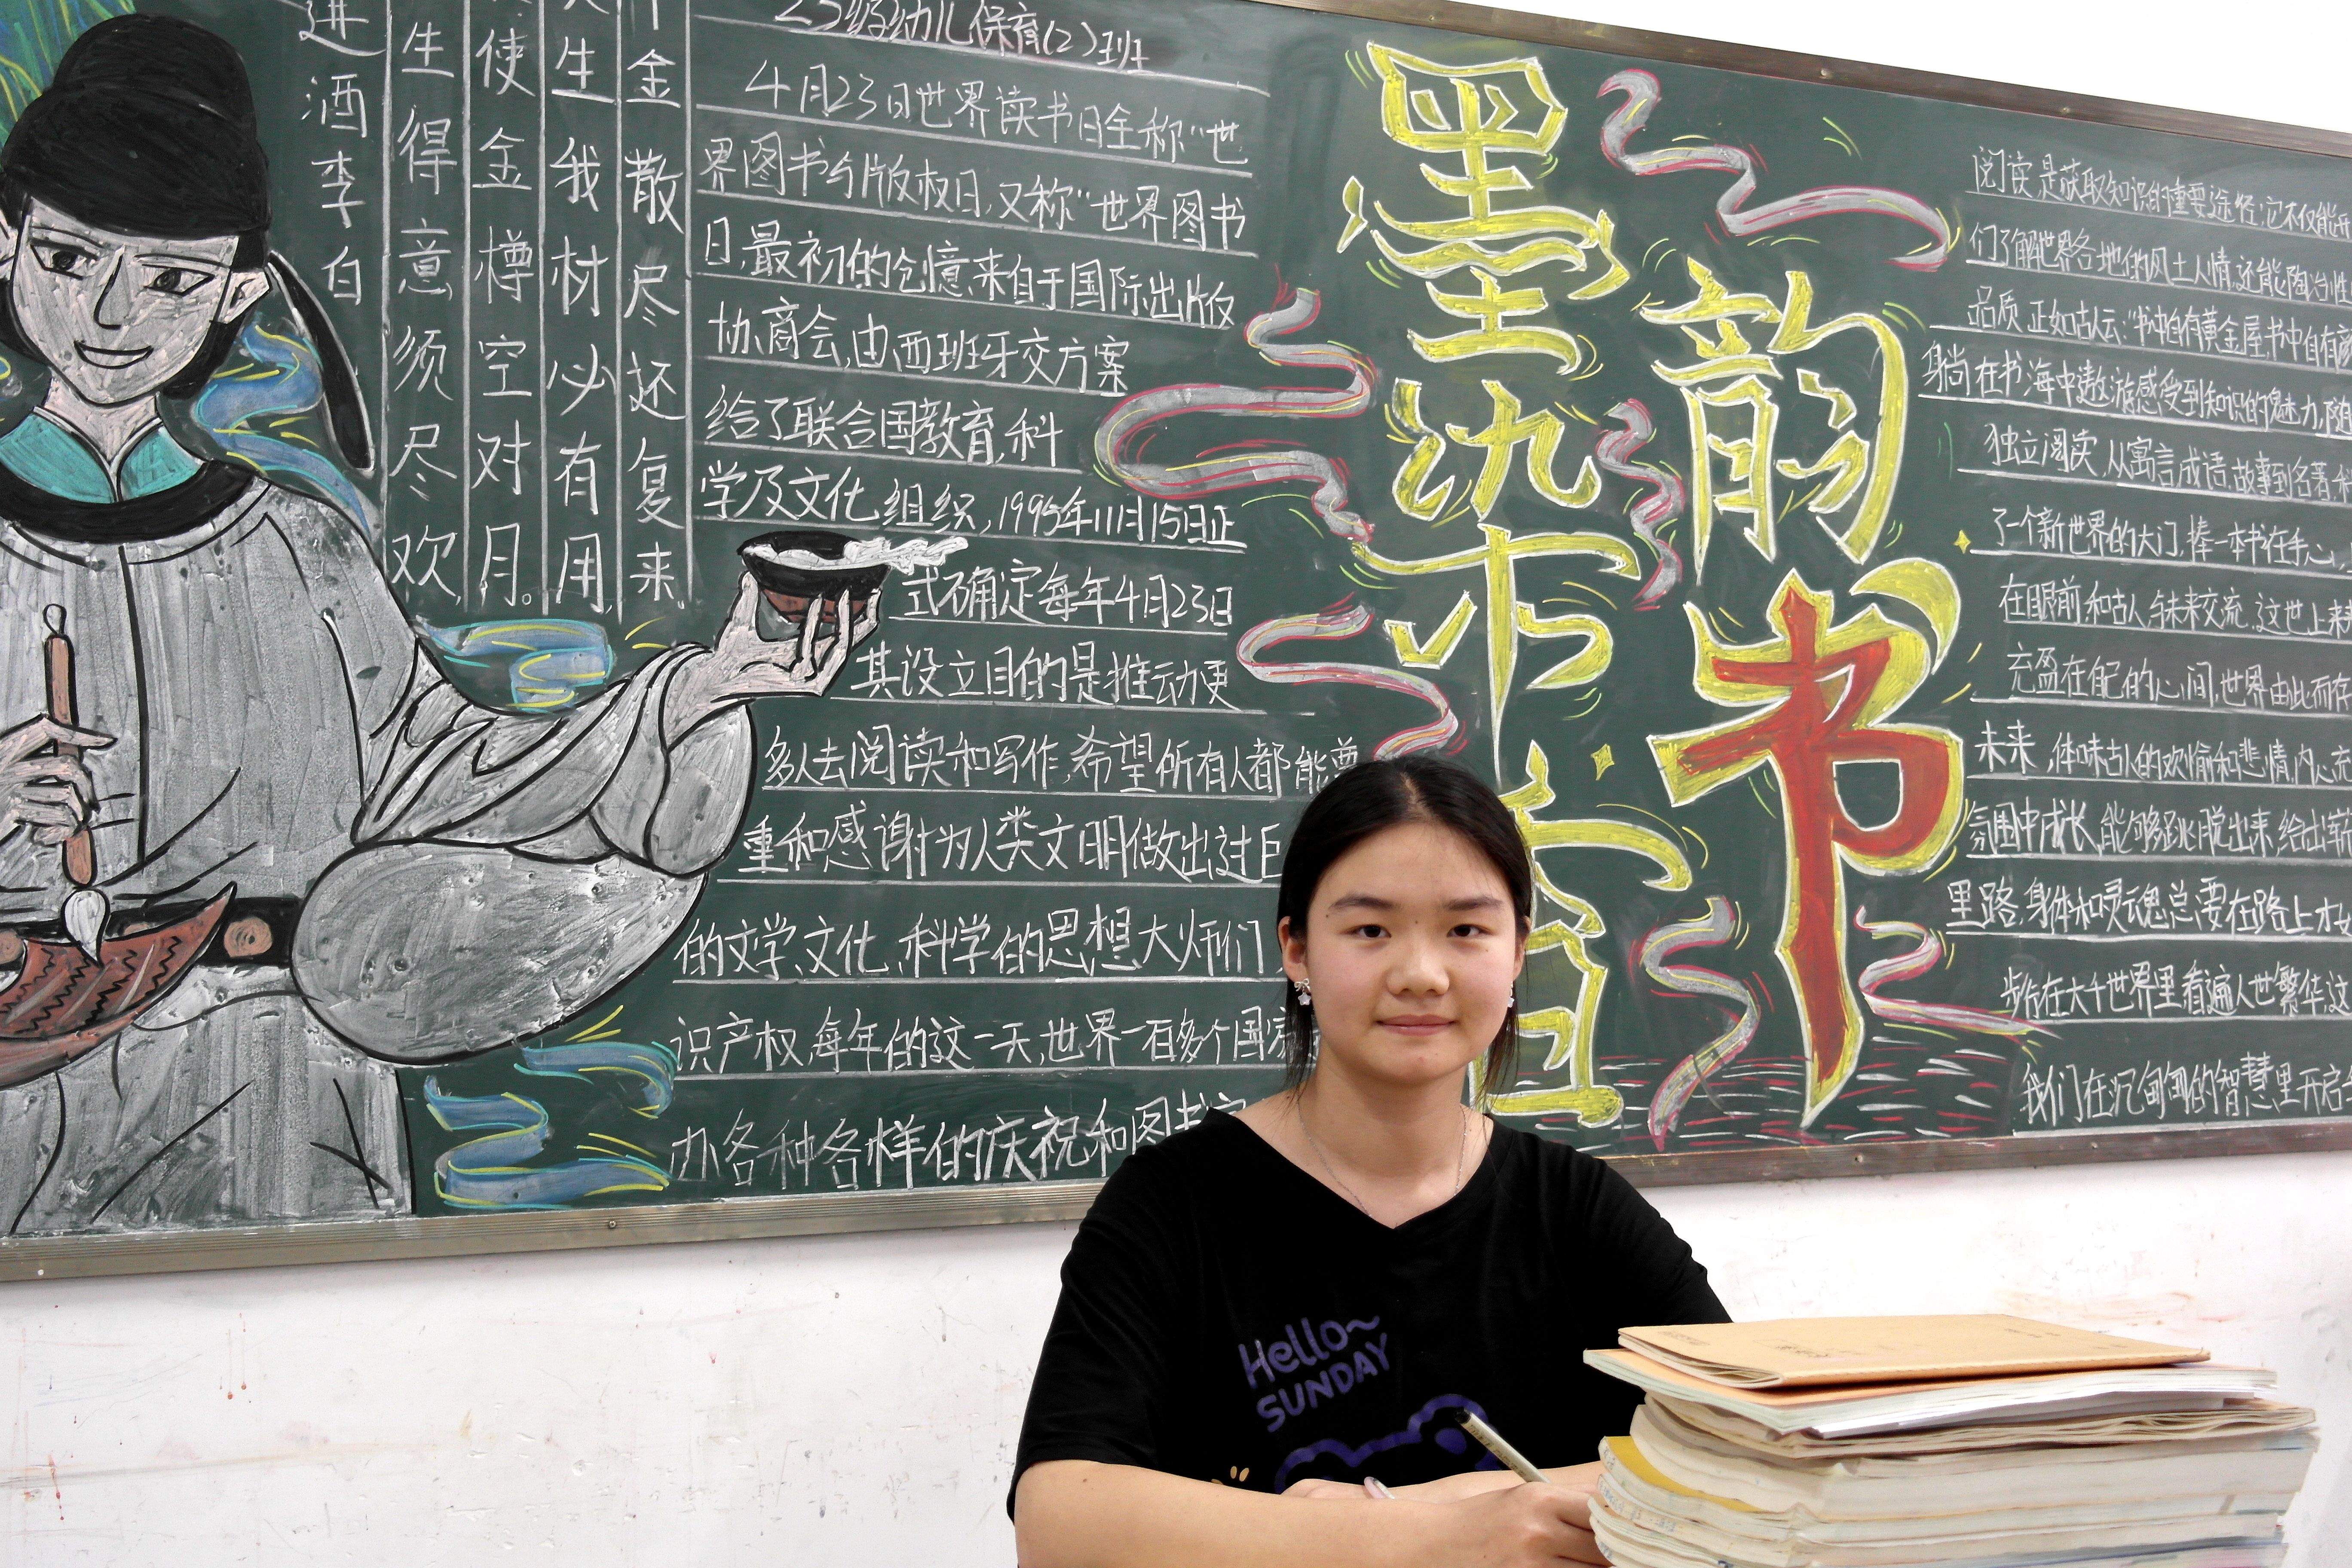 进酒 李白
生得意须尽欢,
使金樽空对月。
生我材必有用,
金散尽还复来。
23级幼儿保育(2)班
4月23日世界读书日全称“世
界图书与版权日,又称“世界图书
日,最初的创意来自于国际出版
协商会,由西班牙交方案
给了联合国教育,科
学及文化组织,1995年11月15日正
式确定每年4月23日
其设立目的是推动更
多人去阅读和写作,希望所有人都能尊
重和感谢为人类文明做出过巨
的文学、文化,科学的思想大师们
识产权,每年的这一天,世界一百多个国家
办各种各样的庆祝和图书
墨染香
韵书
阅读是获取知识的重要途径,它不仅能
们了解世界各地的风土人情,还能陶冶性
品质,正如古人云:“书中自有黄金屋书中自有
躺在书海中遨游感受到知识的魅力,
独立阅读,从寓言,成语,故事到名著
了一个新世界的大门,捧一本书在手心,
在眼前,和古人与未来交流,这世上
充盈在自己的心间,世界由此而存
未来,体味古人的欢愉和悲情,内心
氛围中成长,能够跳脱出来,给出
里路,身体和灵魂总要在路上
步行在大千世界里看遍人世繁华,这
我们在沉甸甸的智慧里开启
Hello~
SUNDAY